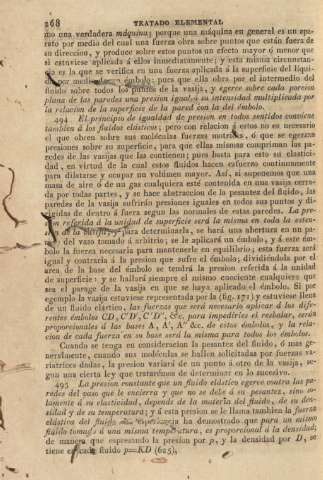 268 TRATADO ELEMENTAL
mo una verdadera máquina; porque una máquina en general es un apa-
rato por medio del cual una fuerza obra sobre puntos que están fuera de
su direccion, y produce sobre estos puntos un efecto mayor ó menor que
si estuviese aplicada á ellos inmediatamente; y esta misma circunstan-
cia es la que se verifica en una fuerza aplicada á la superficie del líqui-
do por medio émbolo: pues que ella obra por el intermedio del
fluido sobre todos los puntos de la vasija, y egerce sobre cada porcion
plana de las paredes una presion igual á su intensidad multiplicada por
la relacion de la superficie de la pared con la del émbolo.
494 El principio de igualdad de presion en todos sentidos conviene
tambien á los fluidos elásticos; pero con relacion á estos no es necesario
el que obren sobre sus moléculas fuerzas motrices, ó que se egerzan
presiones sobre su superficie, para que ellas mismas compriman las pa-
redes de las vasijas que las contienen; pues basta para esto su elastici-
dad, en virtud de la cual estos fluidos hacen esfuerzo continuamente
para dilatarse y ocupar un volúmen mayor. Así, si suponemos que una
masa de aire ó de un gas cualquiera esté contenida en una vasija cerra-
da por todas partes, y se hace abstraccion de la pesantez del fluido, las
paredes de la vasija sufrirán presiones iguales en todos sus puntos y di-
rigidas de dentro á fuera segun las normales de estas paredes. La pre-
sion referida á la unidad de superficie será la misma en toda la esten-
sion de la vasija; y para determinarla, se hará una abertura en un pa-
rage del vazo tomado á arbitrio; se le aplicará un émbolo, y á este ém-
bolo la fuerza necesaria para mantenerle en equilibrio; esta fuerza será
igual y contraria á la presion que sufre el émbolo; dividiéndola por el
area de la base del émbolo se tendrá la presion referida á la unidad
de superficie: y se hallará siempre el mismo cuociente cualquiera que
sea el parage de la vasija en que se haya aplicado el émbolo. Si por
egemplo la vasija estuviese representada por la (fig. 171); y estuviese llena
de un fluido elástico, las fuerzas que será necesario aplicar á los dife-
rentes émbolos CD, C'D', C''D'', &c. para impedirles el resbalar, serán
proporcionales á las bases A, A', A'' &c. de estos émbolos, y la rela-
cion de cada fuerza en su base será la misma para todos los émbolos.
Cuando se tenga en consideracion la pesantez del fluido, ó mas ge-
neralmente, cuando sus moléculas se hallen solicitadas por fuerzas va-
riatrices dadas, la presion variará de un punto á otro de la vasija, se-
gun una cierta ley que trataremos de determinar en lo sucesivo.
495 La presion constante que un fluido elástico egerce contra las pa-
redes del vaso que le encierra y que no se debe á su pesantez, sino so-
lamente á su elasticidad, depende de la materia del fluido, de su den-
sidad y de su temperatura; y á esta presion se le llama tambien la fuerza
elástica del fluido esperiencia ha demostrado que para un mismo
fluido tomado á una misma temperatura, es proporcional á la densidad;
de manera que espresando la presion por p, y la densidad por D, se
tiene en cada fluido p=KD (625),